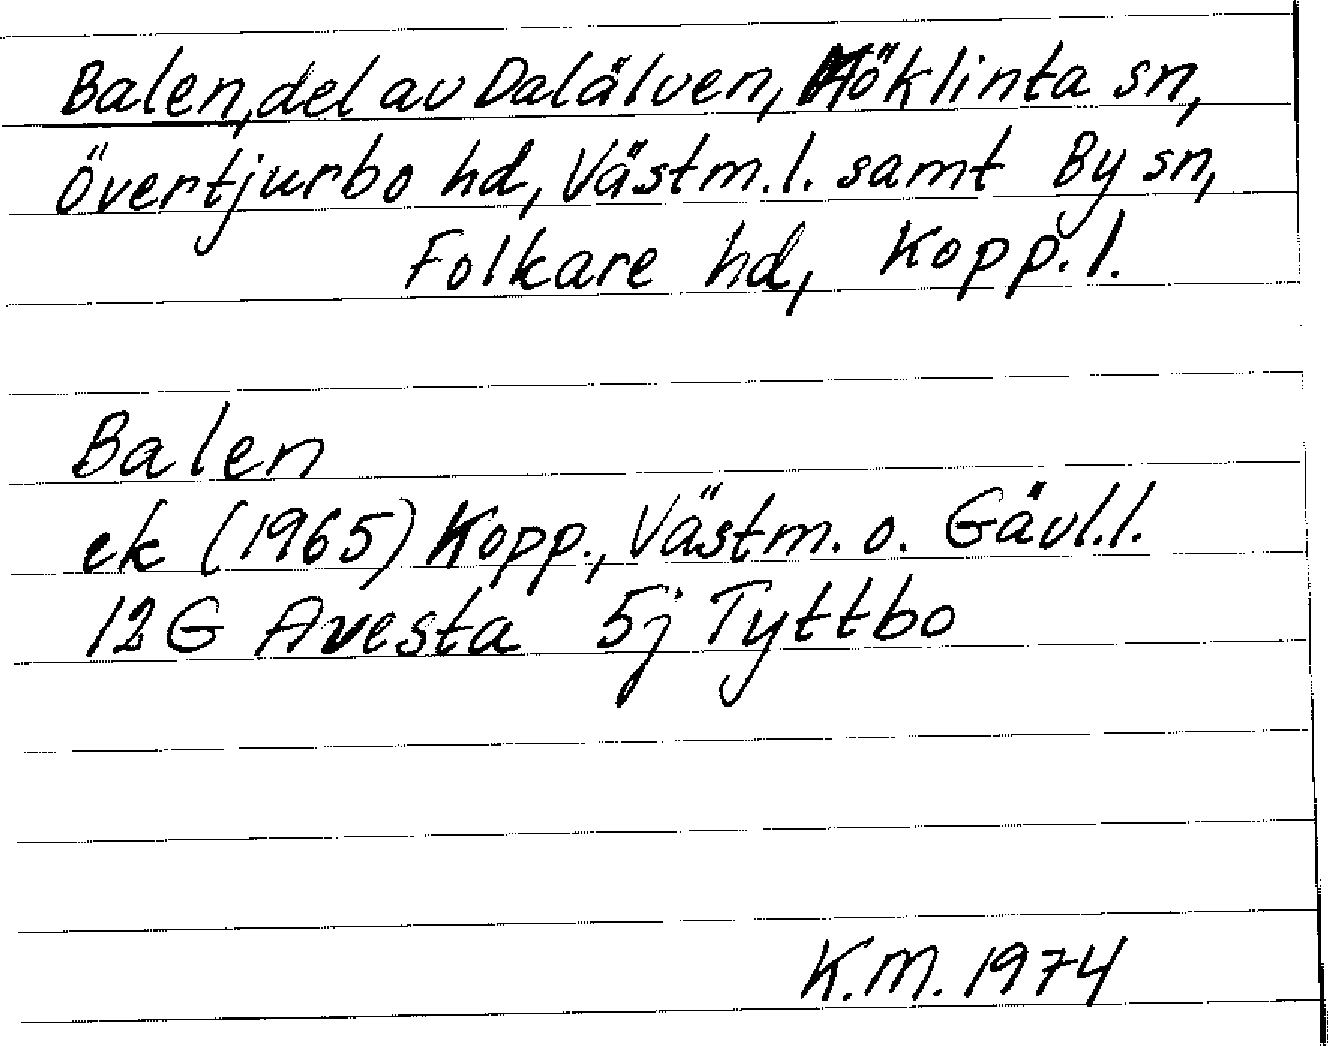 Balen, del av Dalälven, Möklinta sn,
Övertjurbo hd, Västm. l. samt By sn,
Folkare hd, Kopp. l.
Balen
ek (1965) Kopp., Västm. o. Gävl. l.
12G Avesta 5j Tyttbo
K.M. 1974